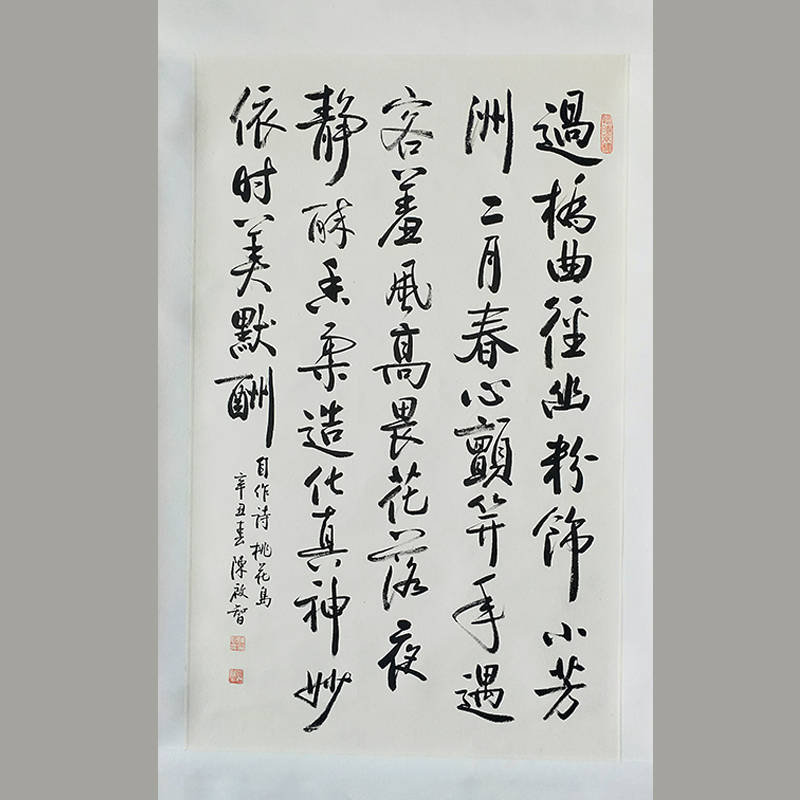 過橋曲徑幽粉飾小芳
洲二月春心顫笄年遇
客羞風高畏花落夜
靜酥香柔造化真神妙
依时美默酬
自作诗桃花島
辛丑春陳啟智